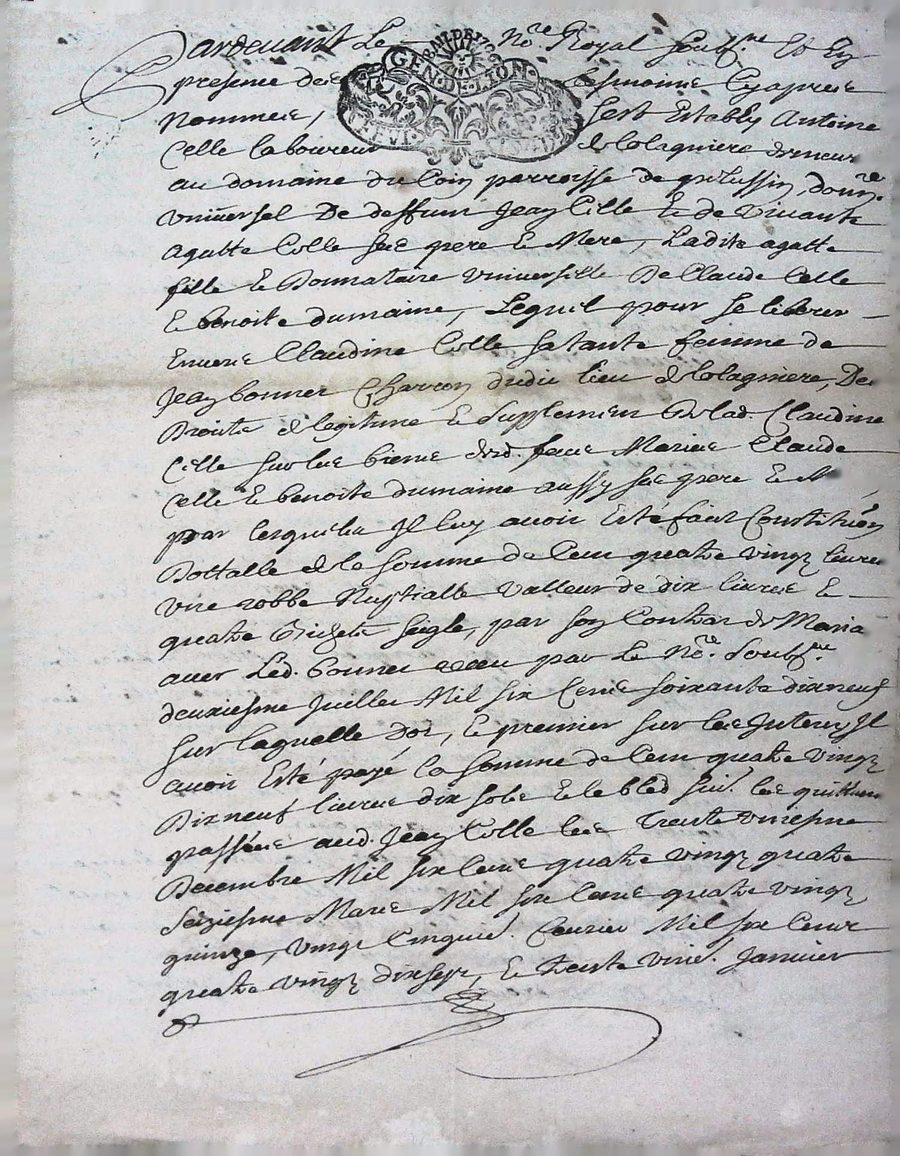 Pardevant Le No.re Royal soub.ne Et En
GEN. DE LION.
presence des tesmoins Cyapres
nommes, sest Estably Antoine
Celle laboureur de Colagniere demeur.
au domaine du Coin parroisse de pelussin, donn.re
universel De deffunt Jean Celle Et de vivante
agatte Celle ses pere Et Mere, Ladite agatte
fille Et Donnataire universelle De Claude Celle
Et benoite dumaine, Lequel pour se liberer
Envers Claudine Celle sa tante femme de
Jean bonnet Charron dudit lieu de Colagniere, Des
Droits de legitime Et supplement De lad. Claudine
Celle sur les biens desd. feus Maries Claude
Celle Et benoite dumaine aussy ses pere Et M
par lesquels Il luy avoit Esté fait Constitu.on
Dottalle de la somme de Cent quatre vingt livres
une robbe Nuptialle valleur de dix livres Et
quatre Bichets seigle, par son Contrat de Maria
avec Led. bonnet receu par Le No.re soub.ne
deuxiesme Juillet Mil six Cens soixante dix neuf
sur laquelle dot, Et premier sur les Interests Il
avoit Esté payé la somme de Cent quatre vingt
Dix neuf livres dix sols Et le bled suiv. les quittan
passées aud. Jean Celle les trente uniesme
Decembre Mil six Cens quatre vingt quatre
seiziesme Mars Mil six Cens quatre vingt
quinze, vingt Cinquie. fevrier Mil six Cens
quatre vingt dix sept, Et trente unie. Janvier